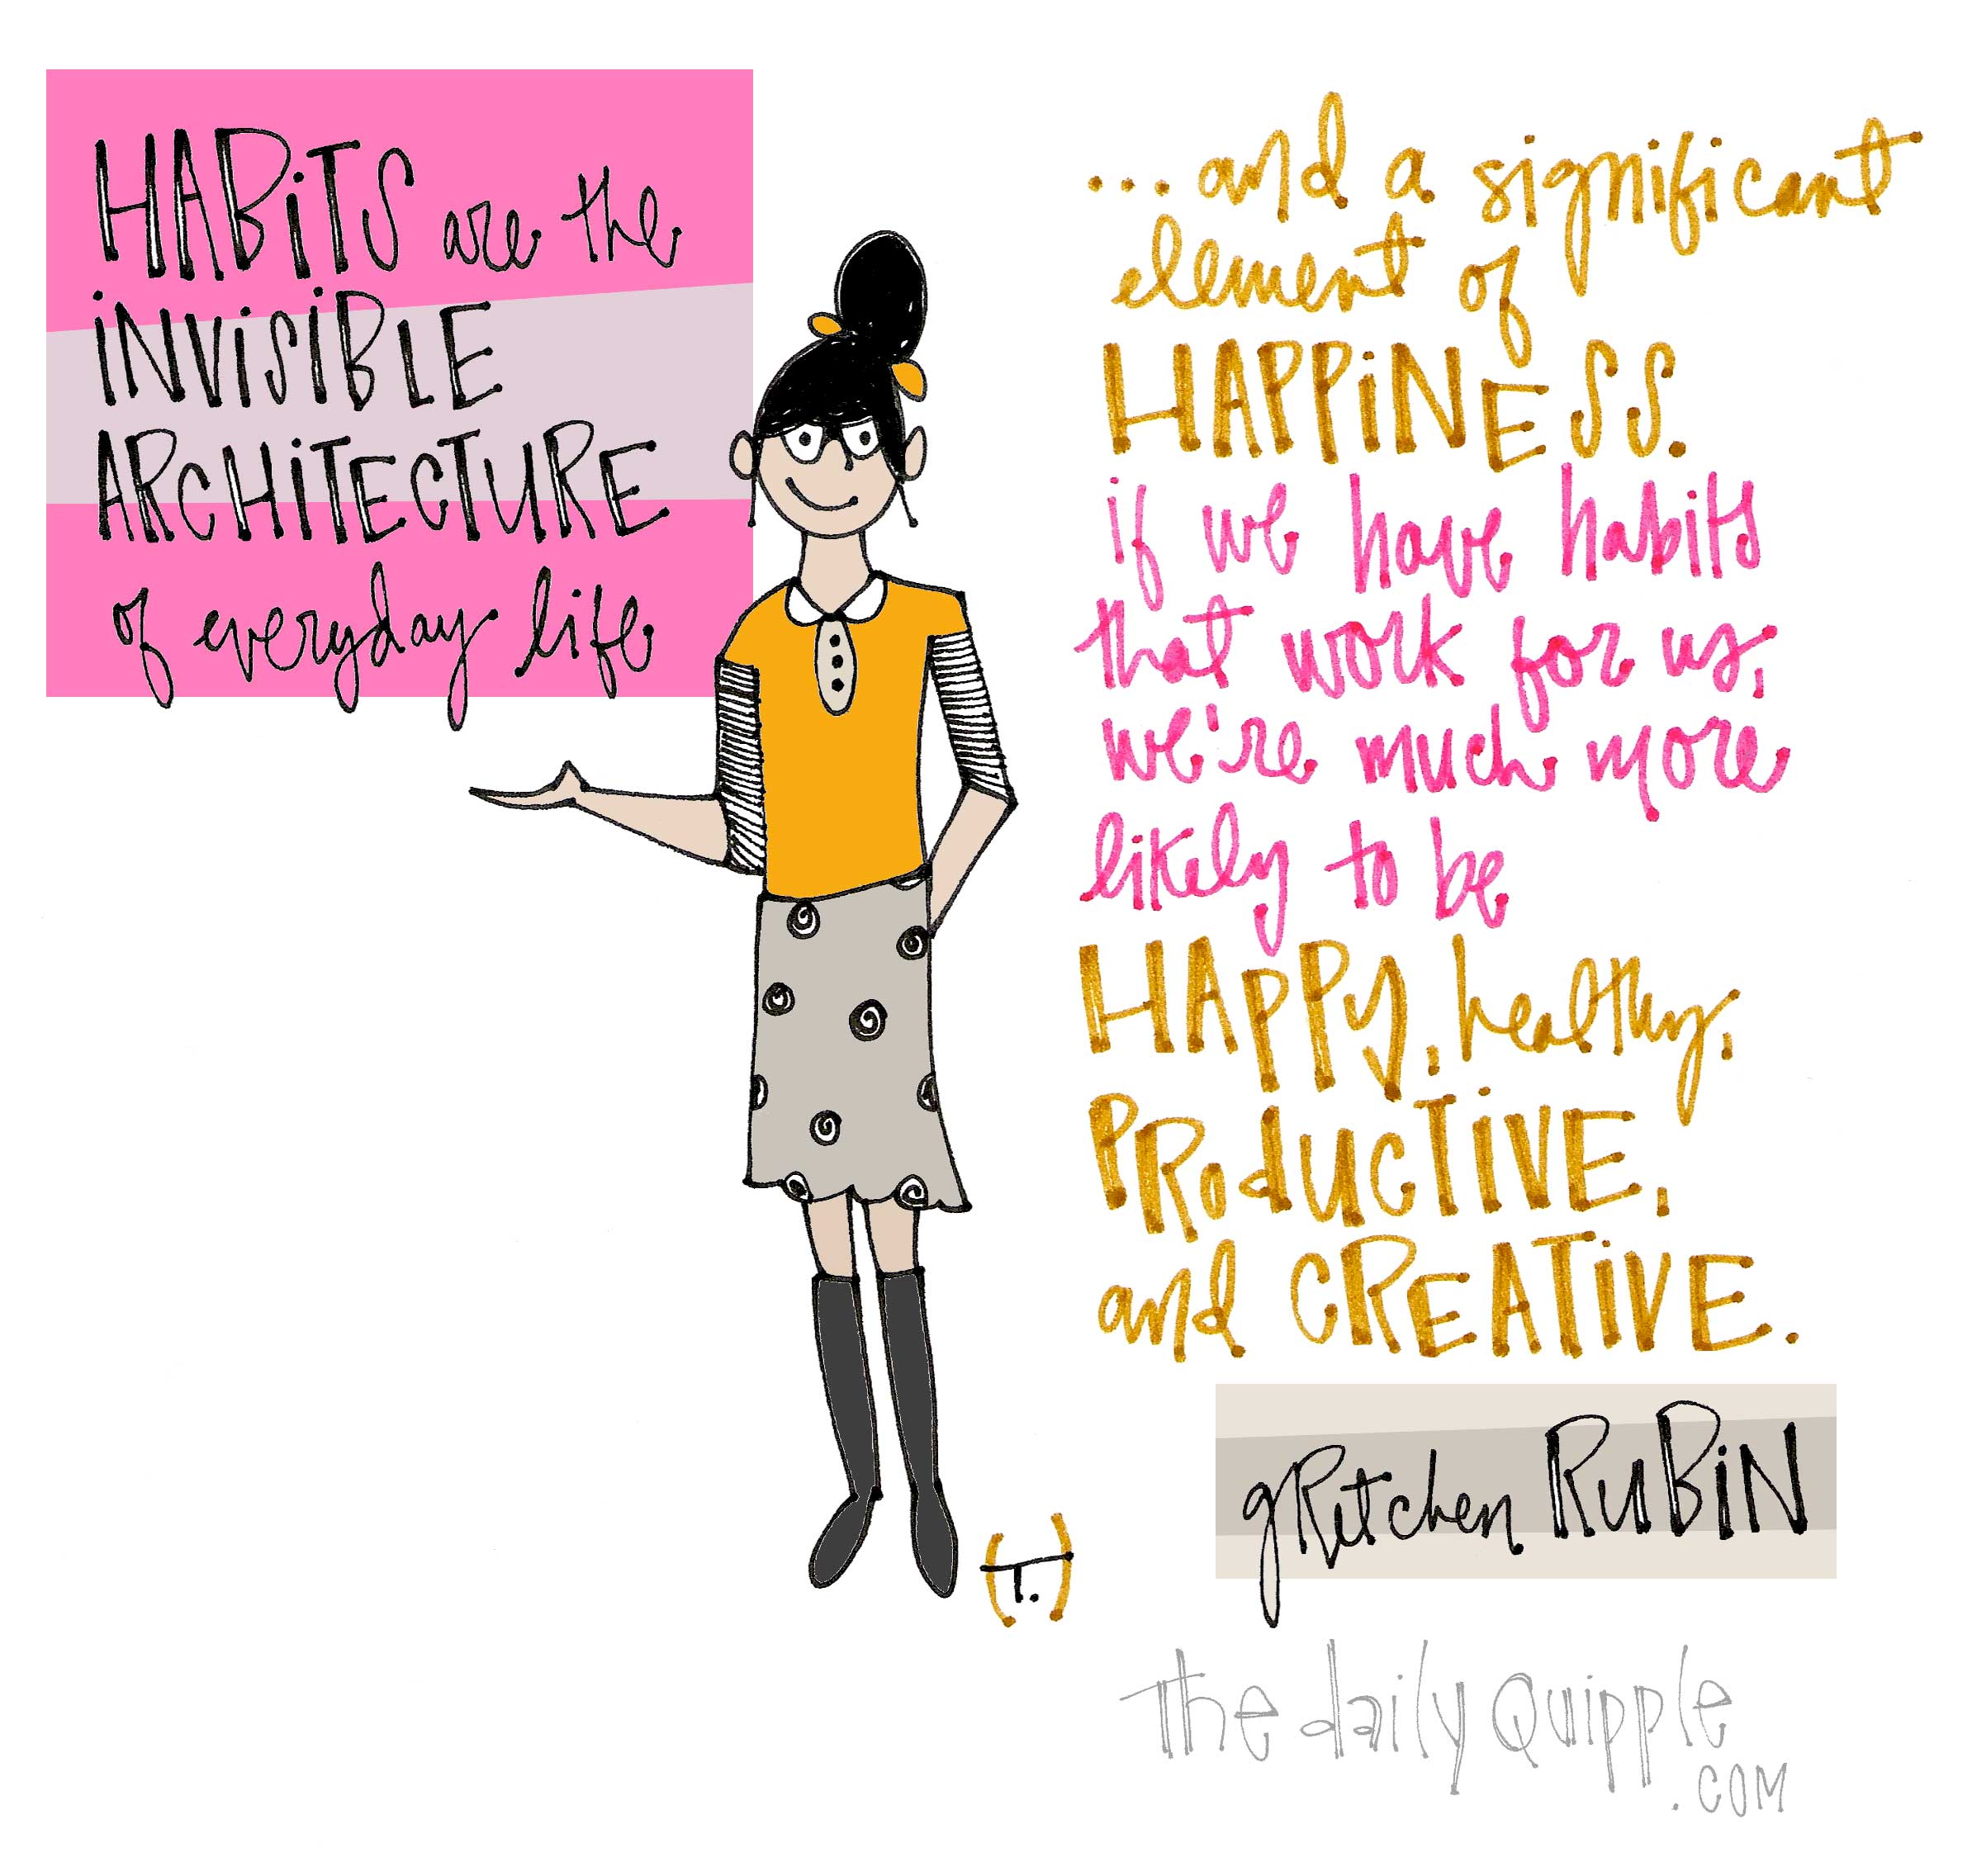 HABiTS are the
iNViSiBLE
ARCHiTECTURE
of everyday life
...and a significant
element of
HAPPiNESS.
if we have habits
that work for us,
we're much more
likely to be
HAPPy, healthy,
PRodUCTiVE,
and CREATiVE.
gRetchen RuBiN
(T.)
the daily Quipple
.COM